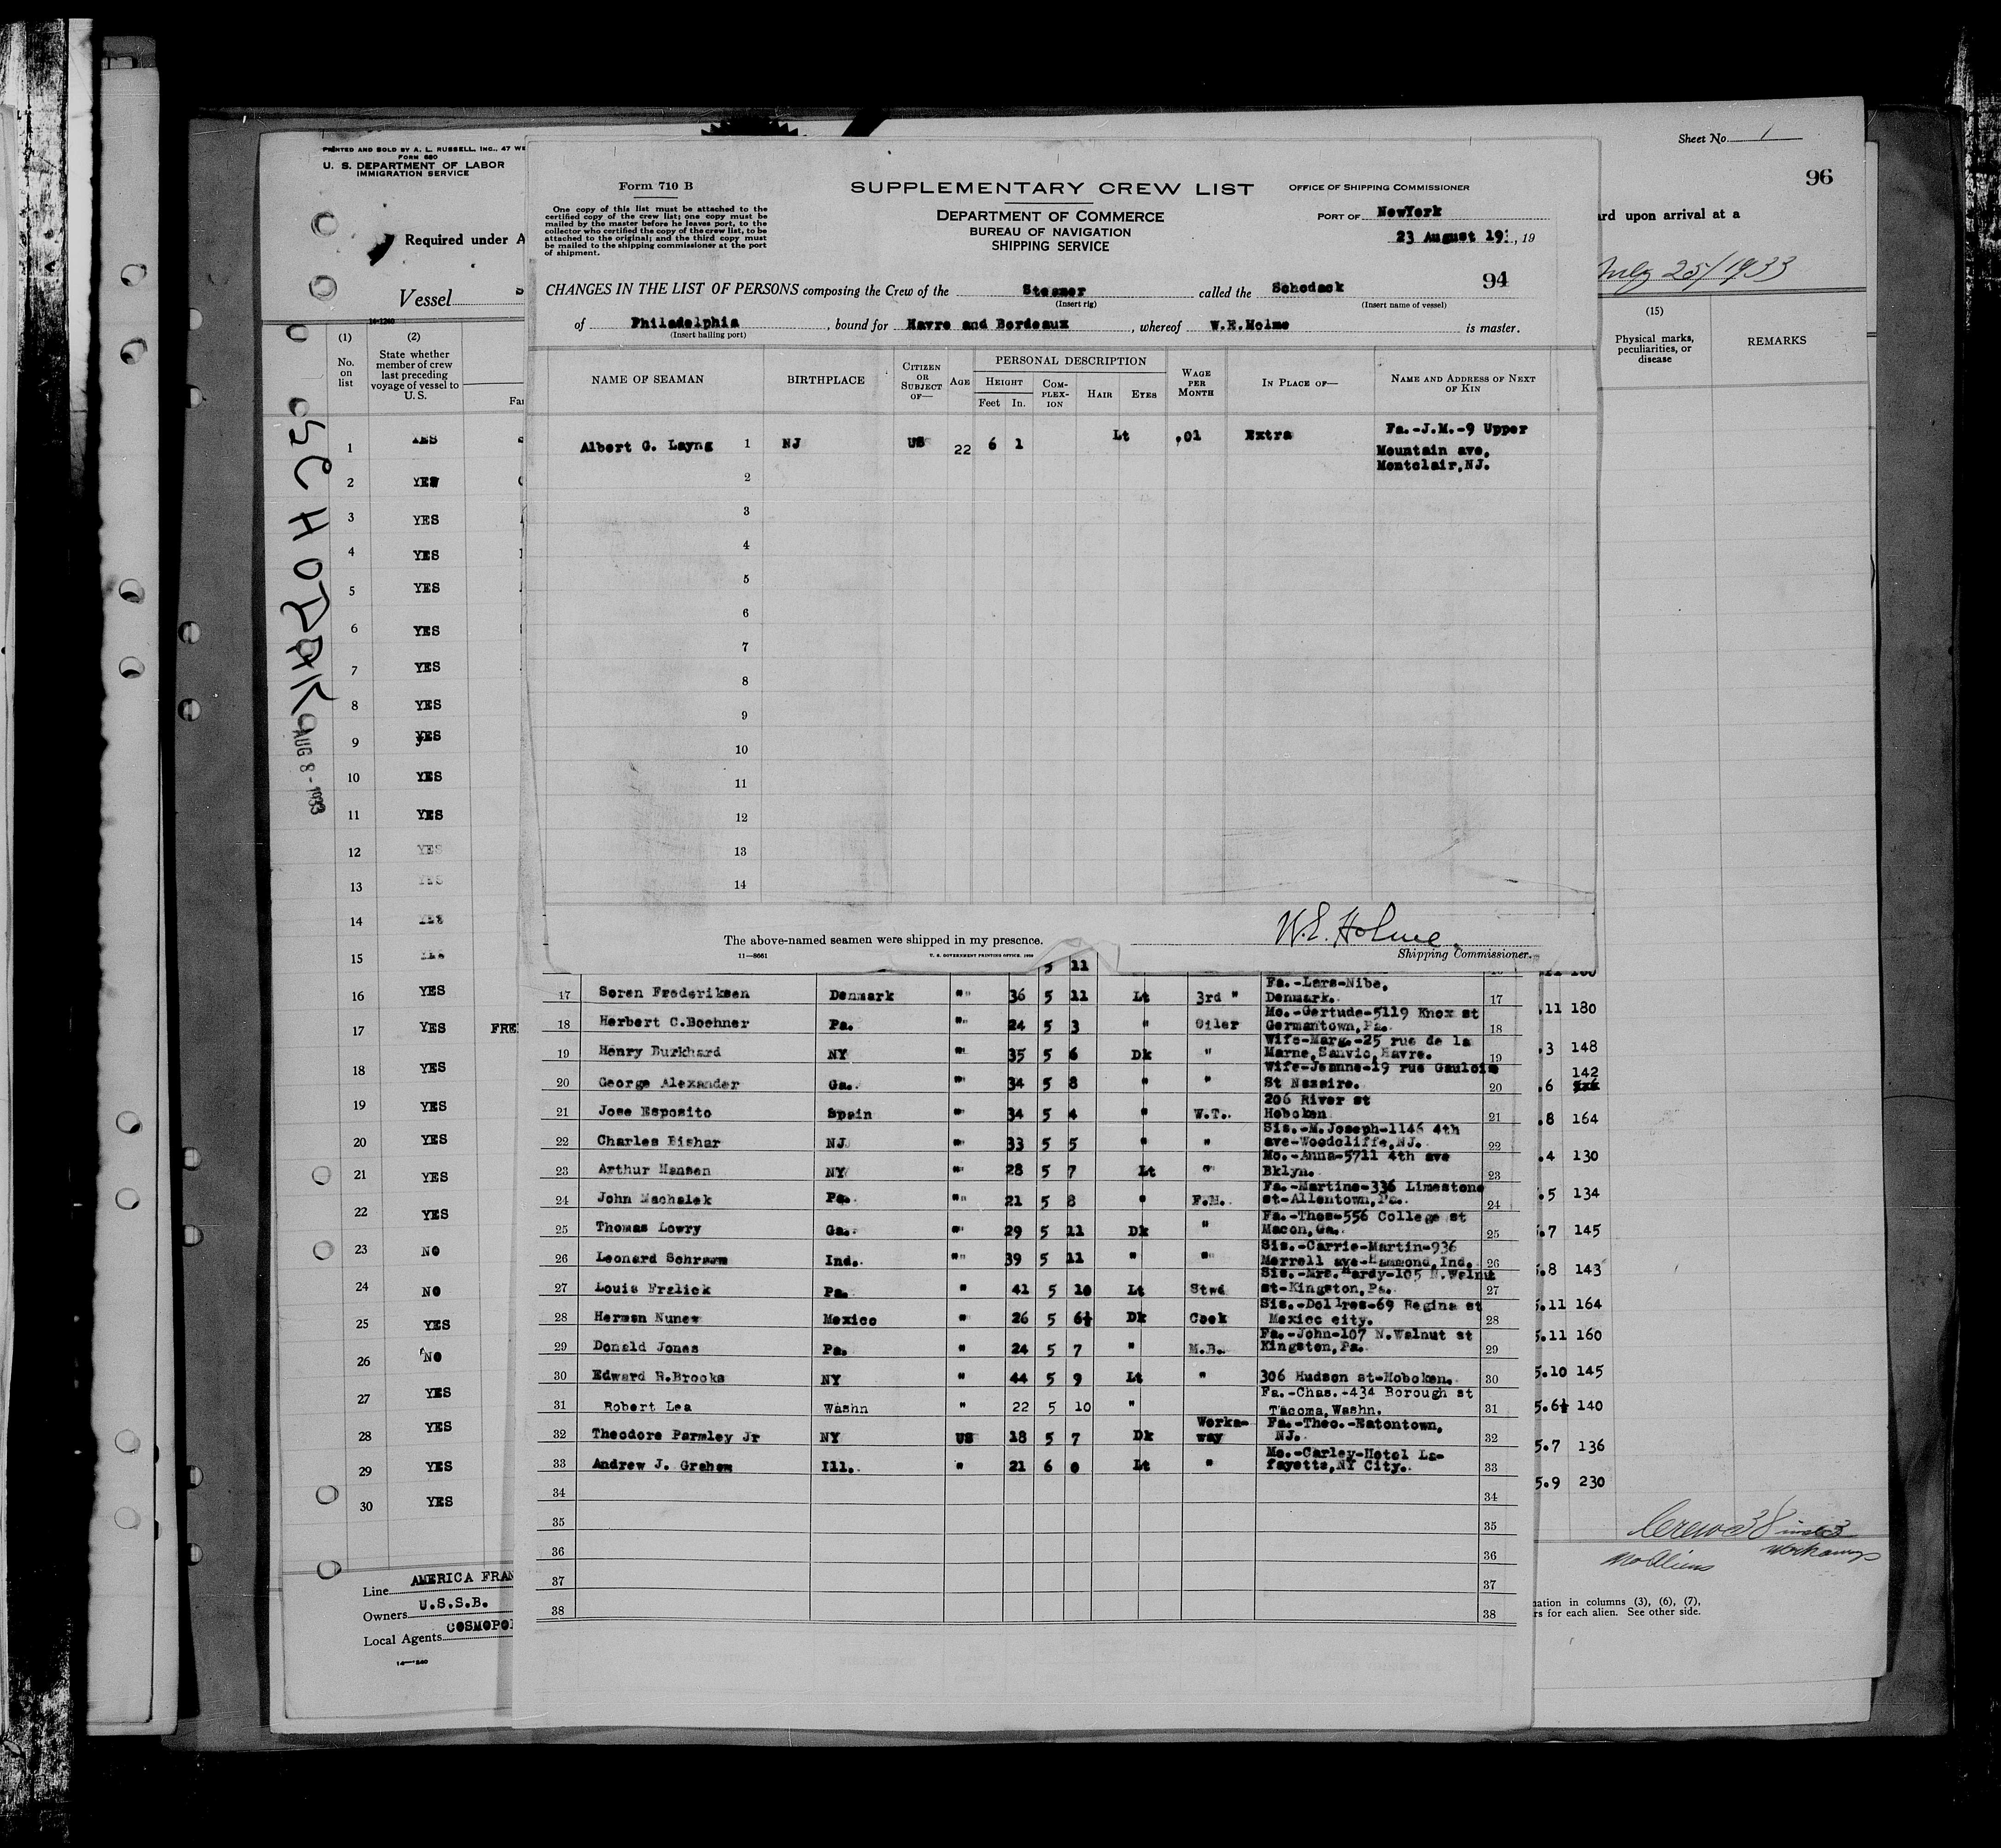 PRINTED AND SOLD BY A. L. RUSSELL, INC., 47 WE
FORM 680
U. S. DEPARTMENT OF LABOR
IMMIGRATION SERVICE
Required under A
Vessel
14-1240
(1)
No.
on
list
(2)
State whether
member of crew
last preceding
voyage of vessel to
U.S.
1 YES
2 YES
3 YES
4 YES
5 YES
6 YES
7 YES
8 YES
9 YES
10 YES
11 YES
12 YES
13 YES
14 YES
15 YES
16 YES
17 YES FRE
18 YES
19 YES
20 YES
21 YES
22 YES
23 NO
24 NO
25 YES
26 NO
27 YES
28 YES
29 YES
30 YES
SCHODAK
AUG 8 - 1933
Line AMERICA FRAN
Owners U.S.S.B.
Local Agents COSMOPOL
Form 710 B
One copy of this list must be attached to the
certified copy of the crew list; one copy must be
mailed by the master before he leaves port, to the
collector who certified the copy of the crew list, to be
attached to the original; and the third copy must
be mailed to the shipping commissioner at the port
of shipment.
SUPPLEMENTARY CREW LIST
DEPARTMENT OF COMMERCE
BUREAU OF NAVIGATION
SHIPPING SERVICE
OFFICE OF SHIPPING COMMISSIONER
PORT OF NewYork
23 August 19 , 19
94
CHANGES IN THE LIST OF PERSONS composing the Crew of the Steamer called the Schodack
(Insert rig) (Insert name of vessel)
of Philadelphia, bound for Havre and Bordeaux, whereof W.E.Holme is master.
(Insert hailing port)
NAME OF SEAMAN BIRTHPLACE CITIZEN OR SUBJECT OF— AGE PERSONAL DESCRIPTION HEIGHT Feet In. COM-PLEX-ION HAIR EYES WAGE PER MONTH IN PLACE OF— NAME AND ADDRESS OF NEXT OF KIN
Albert G. Layng 1 NJ US 22 6 1 Lt .01 Extra Fa.-J.M.-9 Upper
Mountain ave.
Montclair,NJ.
2
3
4
5
6
7
8
9
10
11
12
13
14
The above-named seamen were shipped in my presence.
W.E. Holme
Shipping Commissioner.
11—8661
U. S. GOVERNMENT PRINTING OFFICE
5 11
17 Soren Frederiksen Denmark " 36 5 11 Lt 3rd " Fa.-Lars-Nibe, Denmark. 17
18 Herbert C.Boehner Pa. " 24 5 3 " Oiler Mo.-Gertude-5119 Knox st Germantown,Pa. 18
19 Henry Burkhard NY " 35 5 6 Dk " Wife-Marg.-25 rue de la Marne,Sanvic,Havre. 19
20 George Alexander Ga. " 34 5 8 " " Wife-Jeanne-19 rue Gaulois St Nazaire. 20
21 Jose Esposito Spain " 34 5 4 " W.T. 206 River st Hoboken 21
22 Charles Bishar NJ " 33 5 5 " " Sis.-M.Joseph-1146 4th ave-Woodcliffe,NJ. 22
23 Arthur Hansen NY " 28 5 7 Lt " Mo.-Anna-5711 4th ave Bklyn. 23
24 John Machalek Pa. " 21 5 8 " F.M. Fa.-Martine-336 Limestone st-Allentown,Pa. 24
25 Thomas Lowry Ga. " 29 5 11 Dk " Fa.-Thos-556 College st Macon,Ga. 25
26 Leonard Schramm Ind. " 39 5 11 " " Sis.-Carrie-Martin-936 Merrell ave-Hammond,Ind. 26
27 Louis Fralick Pa. " 41 5 10 Lt Stwd Sis.-Mrs.Hardy-105 N.Walnut st-Kingston,Pa. 27
28 Herman Nunew Mexico " 26 5 6½ Dk Cook Sis.-Dollres-69 Regina st Mexico city. 28
29 Donald Jones Pa. " 24 5 7 " M.B. Fa.-John-107 N.Walnut st Kingston,Pa. 29
30 Edward R.Brooks NY " 44 5 9 Lt " 306 Hudson st-Hoboken. 30
31 Robert Lea Washn " 22 5 10 " Fa.-Chas.-434 Borough st Tacoma,Washn. 31
32 Theodore Parmley Jr NY US 18 5 7 Dk Worka-way Fa.-Theo.-Eatontown, NJ. 32
33 Andrew J. Graham Ill. " 21 6 0 Lt " Mo.-Carley-Hotel La-fayette,NY City. 33
34 34
35 35
36 36
37 37
38 38
Sheet No. 1
96
ard upon arrival at a
July 25/1933
(15)
Physical marks,
peculiarities, or
disease
REMARKS
.11 180
.3 148
142
.6
.8 164
.4 130
.5 134
5.7 145
5.8 143
5.11 164
5.11 160
5.10 145
5.6½ 140
5.7 136
5.9 230
Crew 38 incl 3
workaways
No Aliens
ation in columns (3), (6), (7),
rs for each alien. See other side.